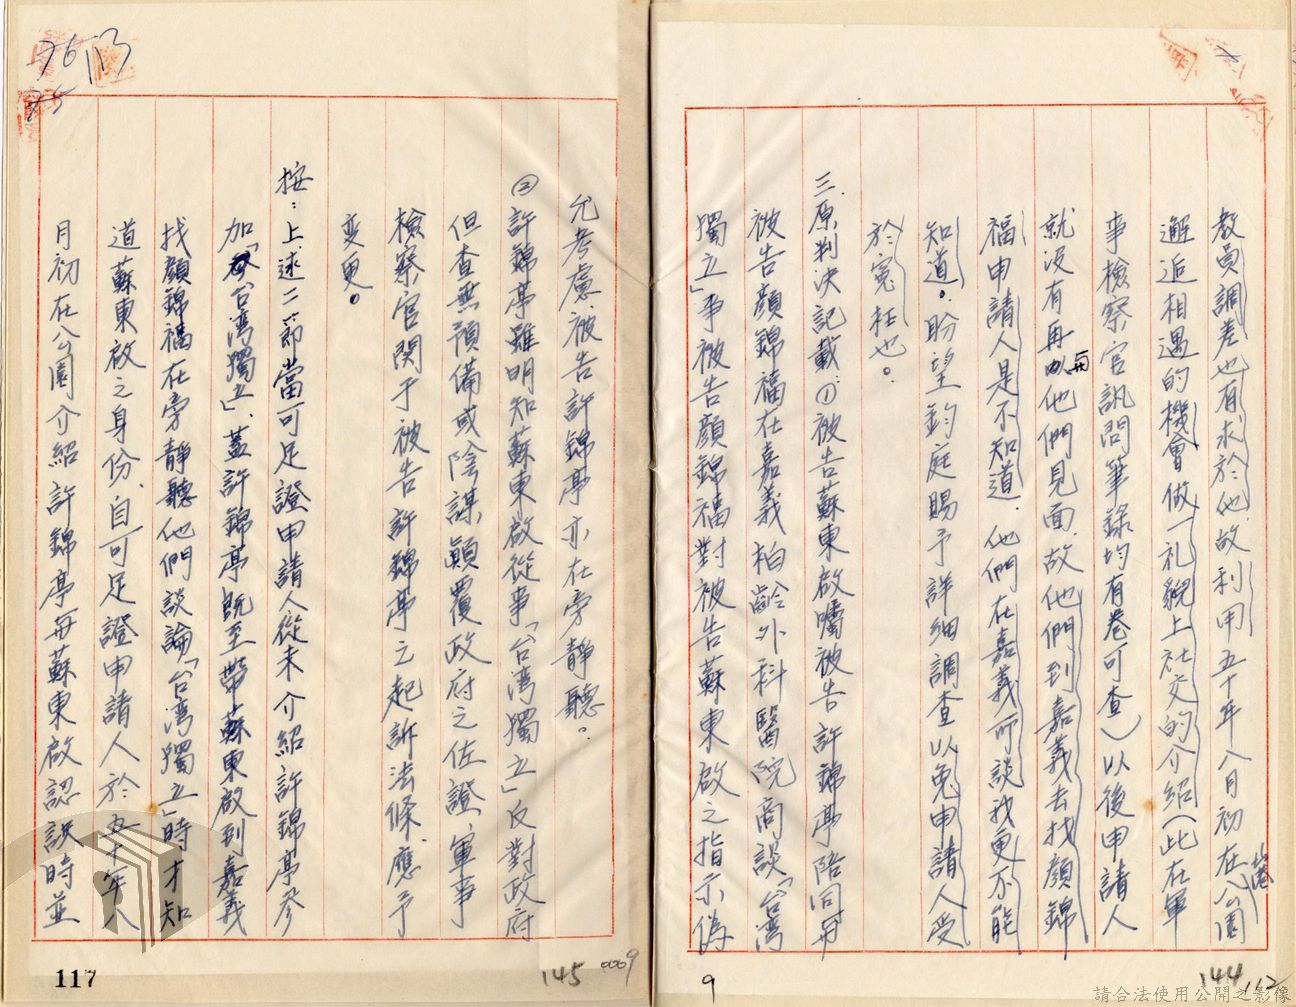 教員調差也有求於他故利用五十年八月初在港公園
邂逅相遇的機會做一礼貌上社交的介紹(此在軍
事檢察官訊問筆錄均有卷可查)以後申請人
就没有再與他們見面,故他們到嘉義去找顏錦
福申請人是不知道,他們在嘉義所談我更不能
知道。盼望鈞庭賜予詳細調查以免申請人受
於冤枉也。
三.原判決記載:①被告蘇東啟囑被告許錦亭陪同與
被告顏錦福在嘉義柏齡外科醫院商談「台湾
獨立」事被告顏錦福對被告蘇東啟之指示偽
144
9
允考慮,被告許錦亭亦在旁靜聽。
②許錦亭雖明知蘇東啟從事「台湾獨立」反對政府
但查無預備或陰謀顛覆政府之佐證,軍事
檢察官関于被告許錦亭之起訴法條,應予
変更。
按:上述二節當可足證申請人從未介紹許錦亭參
加「台湾獨立」,蓋許錦亭既至帶蘇東啟到嘉義
找顏錦福在旁靜聽他們談論「台湾獨立」時才知
道蘇東啟之身份,自可足證申請人於五十年八
月初在公園介紹許錦亭與蘇東啟認識時並
76
113
117
145
0009
請合法使用公開之影像